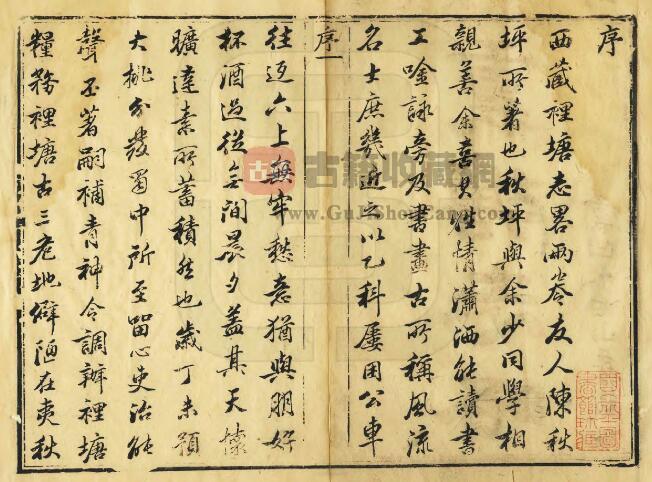 序
西藏裡塘志畧兩卷友人陳秋
坪所著也秋坪與余少同學相
親善余喜其性情瀟洒能讀書
工唫詠旁及書畫古所稱風流
名士庶幾近之以乙科屢困公車
序一
往返六上無牢愁意猶與朋好
杯酒過從無間晨夕蓋其天懷
曠達素所蓄積然也歲丁未預
大挑分發蜀中所至留心吏治能
聲丕著嗣補青神令調辦裡塘
糧務裡塘古三危地僻陋在夷狄
古籍收藏网
www.GuJiShouCang.com